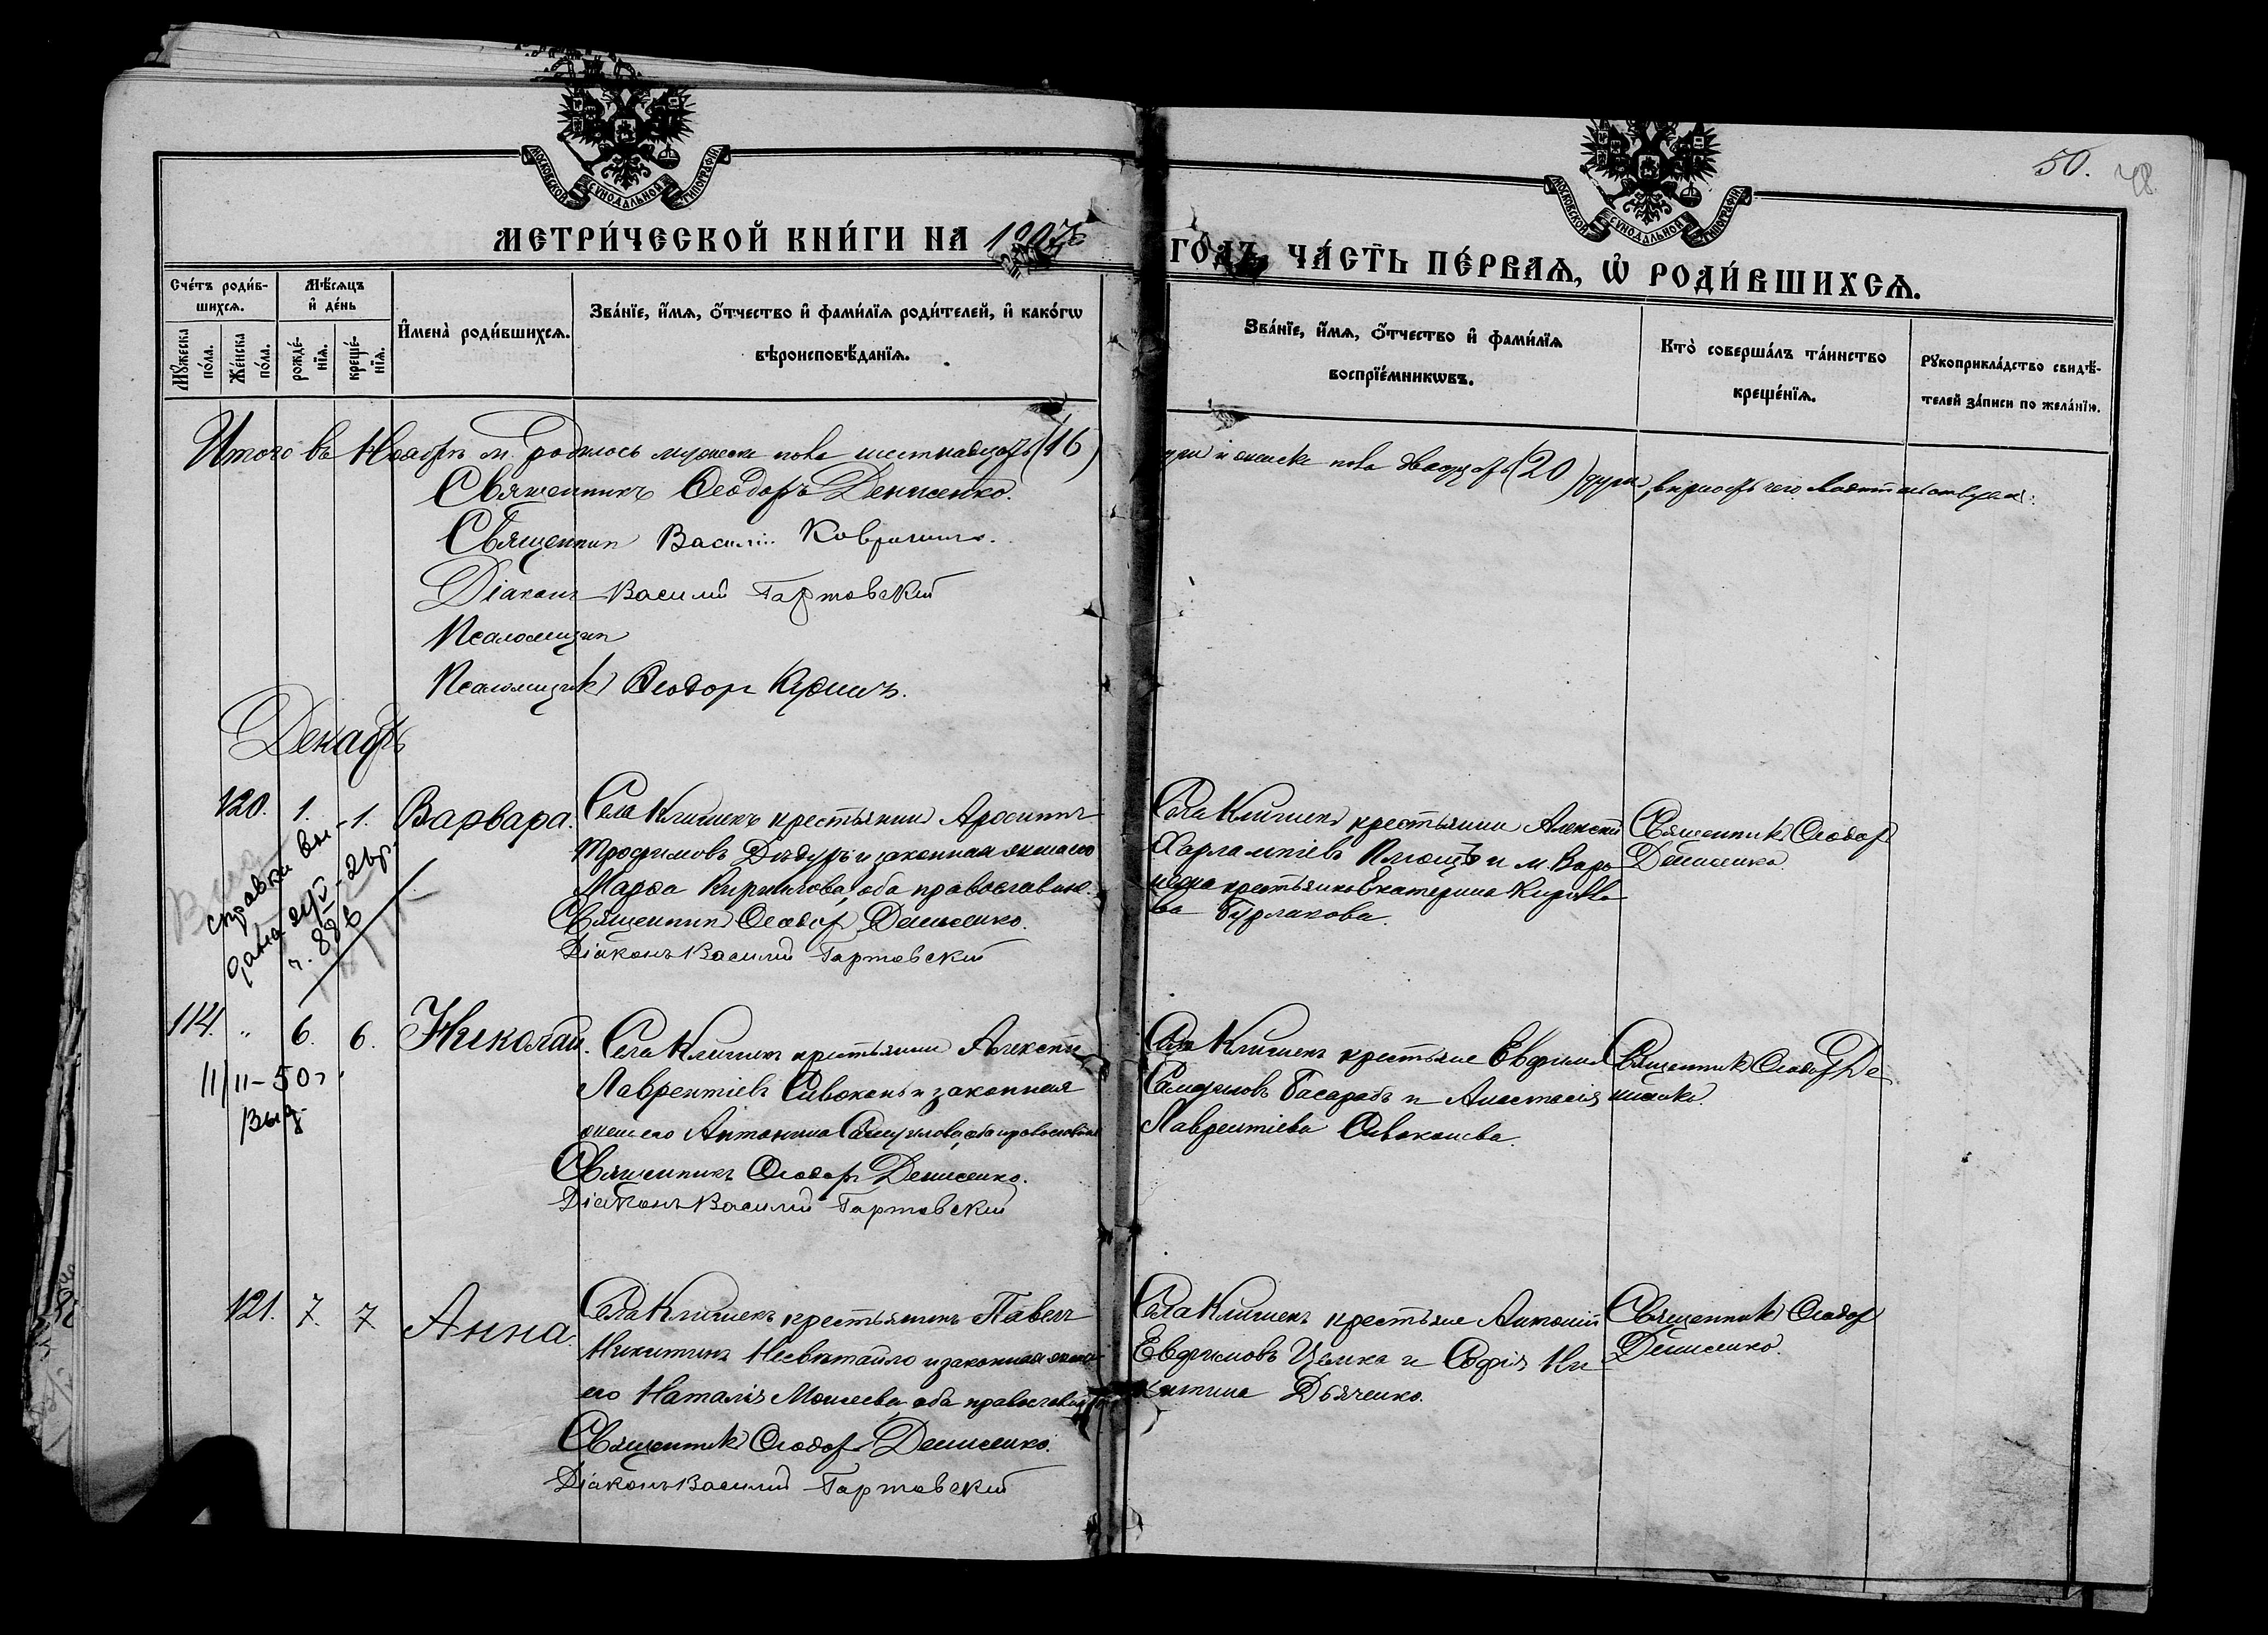 МОСКОВСКОЙ СУНОДАЛЬНОЙ ТИПОГРАФІИ
МОСКОВСКОЙ СУНОДАЛЬНОЙ ТИПОГРАФІИ
50.
48.
МЕТРИ́ЧЕСКОЙ КНИ́ГИ НА
ГО́ДЪ, ЧА́СТЬ ПЕ́РВАѦ, Ѡ҆ РОДИ́ВШИХСѦ.
Сче́тъ роди́в-
шихсѧ.
Мꙋ́жеска по́ла.
Же́нска по́ла.
Мѣ́сѧцъ и҆ де́нь
рожде́-нїѧ.
креще́-нїѧ.
И҆мена̀ роди́вшихсѧ.
Зва́нїе, и҆́мѧ, ѻ҆́тчество и҆ фами́лїѧ роди́телей, и҆ како́гѡ
вѣроисповѣ́данїѧ.
Зва́нїе, и҆́мѧ, ѻ҆́тчество и҆ фами́лїѧ
воспрїе́мникѡвъ.
Кто̀ соверша́лъ та́инство
креще́нїѧ.
Рꙋкоприкла́дство свидѣ́-
телей за́писи по жела́нїю.
Итого въ Ноябрѣ м. родилось мужеска пола шестнадцать (16)
и женска пола двадцать (20) душъ, вѣрность чего
Священникъ Ѳеодоръ Денисенко.
Священник Василій
Діаконъ Василій Гартовскій
Псаломщик
Псаломщик Ѳеодоръ
Декабрь
120. 1. 1. Варвара.
справки
дана
ч. 88
Села Клишекъ крестьянинъ
Трофимовъ Дѣдуръ и законная жена его
Марѳа Кириллова, оба православные.
Священник Ѳеодор Денисенко.
Діаконъ Василій Гартовскій
Села Клишекъ крестьянин Алексѣй
Харлампіевъ и м. Воро
нежа Екатерина Кирилло
ва Бурлакова.
Священник Ѳеодор
Денисенко.
114. " 6. 6. Николай.
11/II-50 г.
Выд.
Села Клишекъ крестьянин Алексѣй
Лаврентіевъ Сивоконь и законная
жена его Антонина Самуилова, оба православные
Священникъ Ѳеодоръ Денисенко.
Діаконъ Василій Гартовскій
Села Клишекъ крестьяне Евфимій
Самуиловъ Басарабъ и Анастасія
Лаврентіева Сивоконева.
Священник Ѳеодор Де
нисенко.
121. 7. 7 Анна.
Села Клишекъ крестьянинъ Павелъ
Никитинъ Несвѣтайло и законная жена
его Наталія Моисеева, оба православные
Священник Ѳеодор Денисенко.
Діаконъ Василий Гартовскій
Села Клишекъ крестьяне Антоній
Евфимовъ Цыпка и Софія Ни
китина Дьяченко.
Священник Ѳеодор
Денисенко.